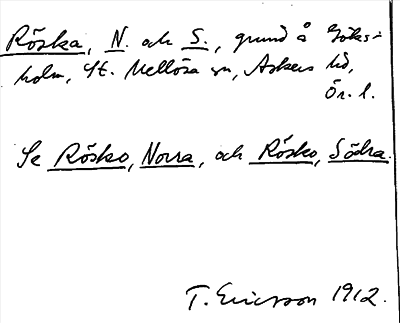 Röska, N. och S., grund å Göks=
holm, St. Mellösa sn, Askers hd,
Ör. l.
Se Rösko, Norra, och Rösko, Södra.
T. Ericsson 1912.